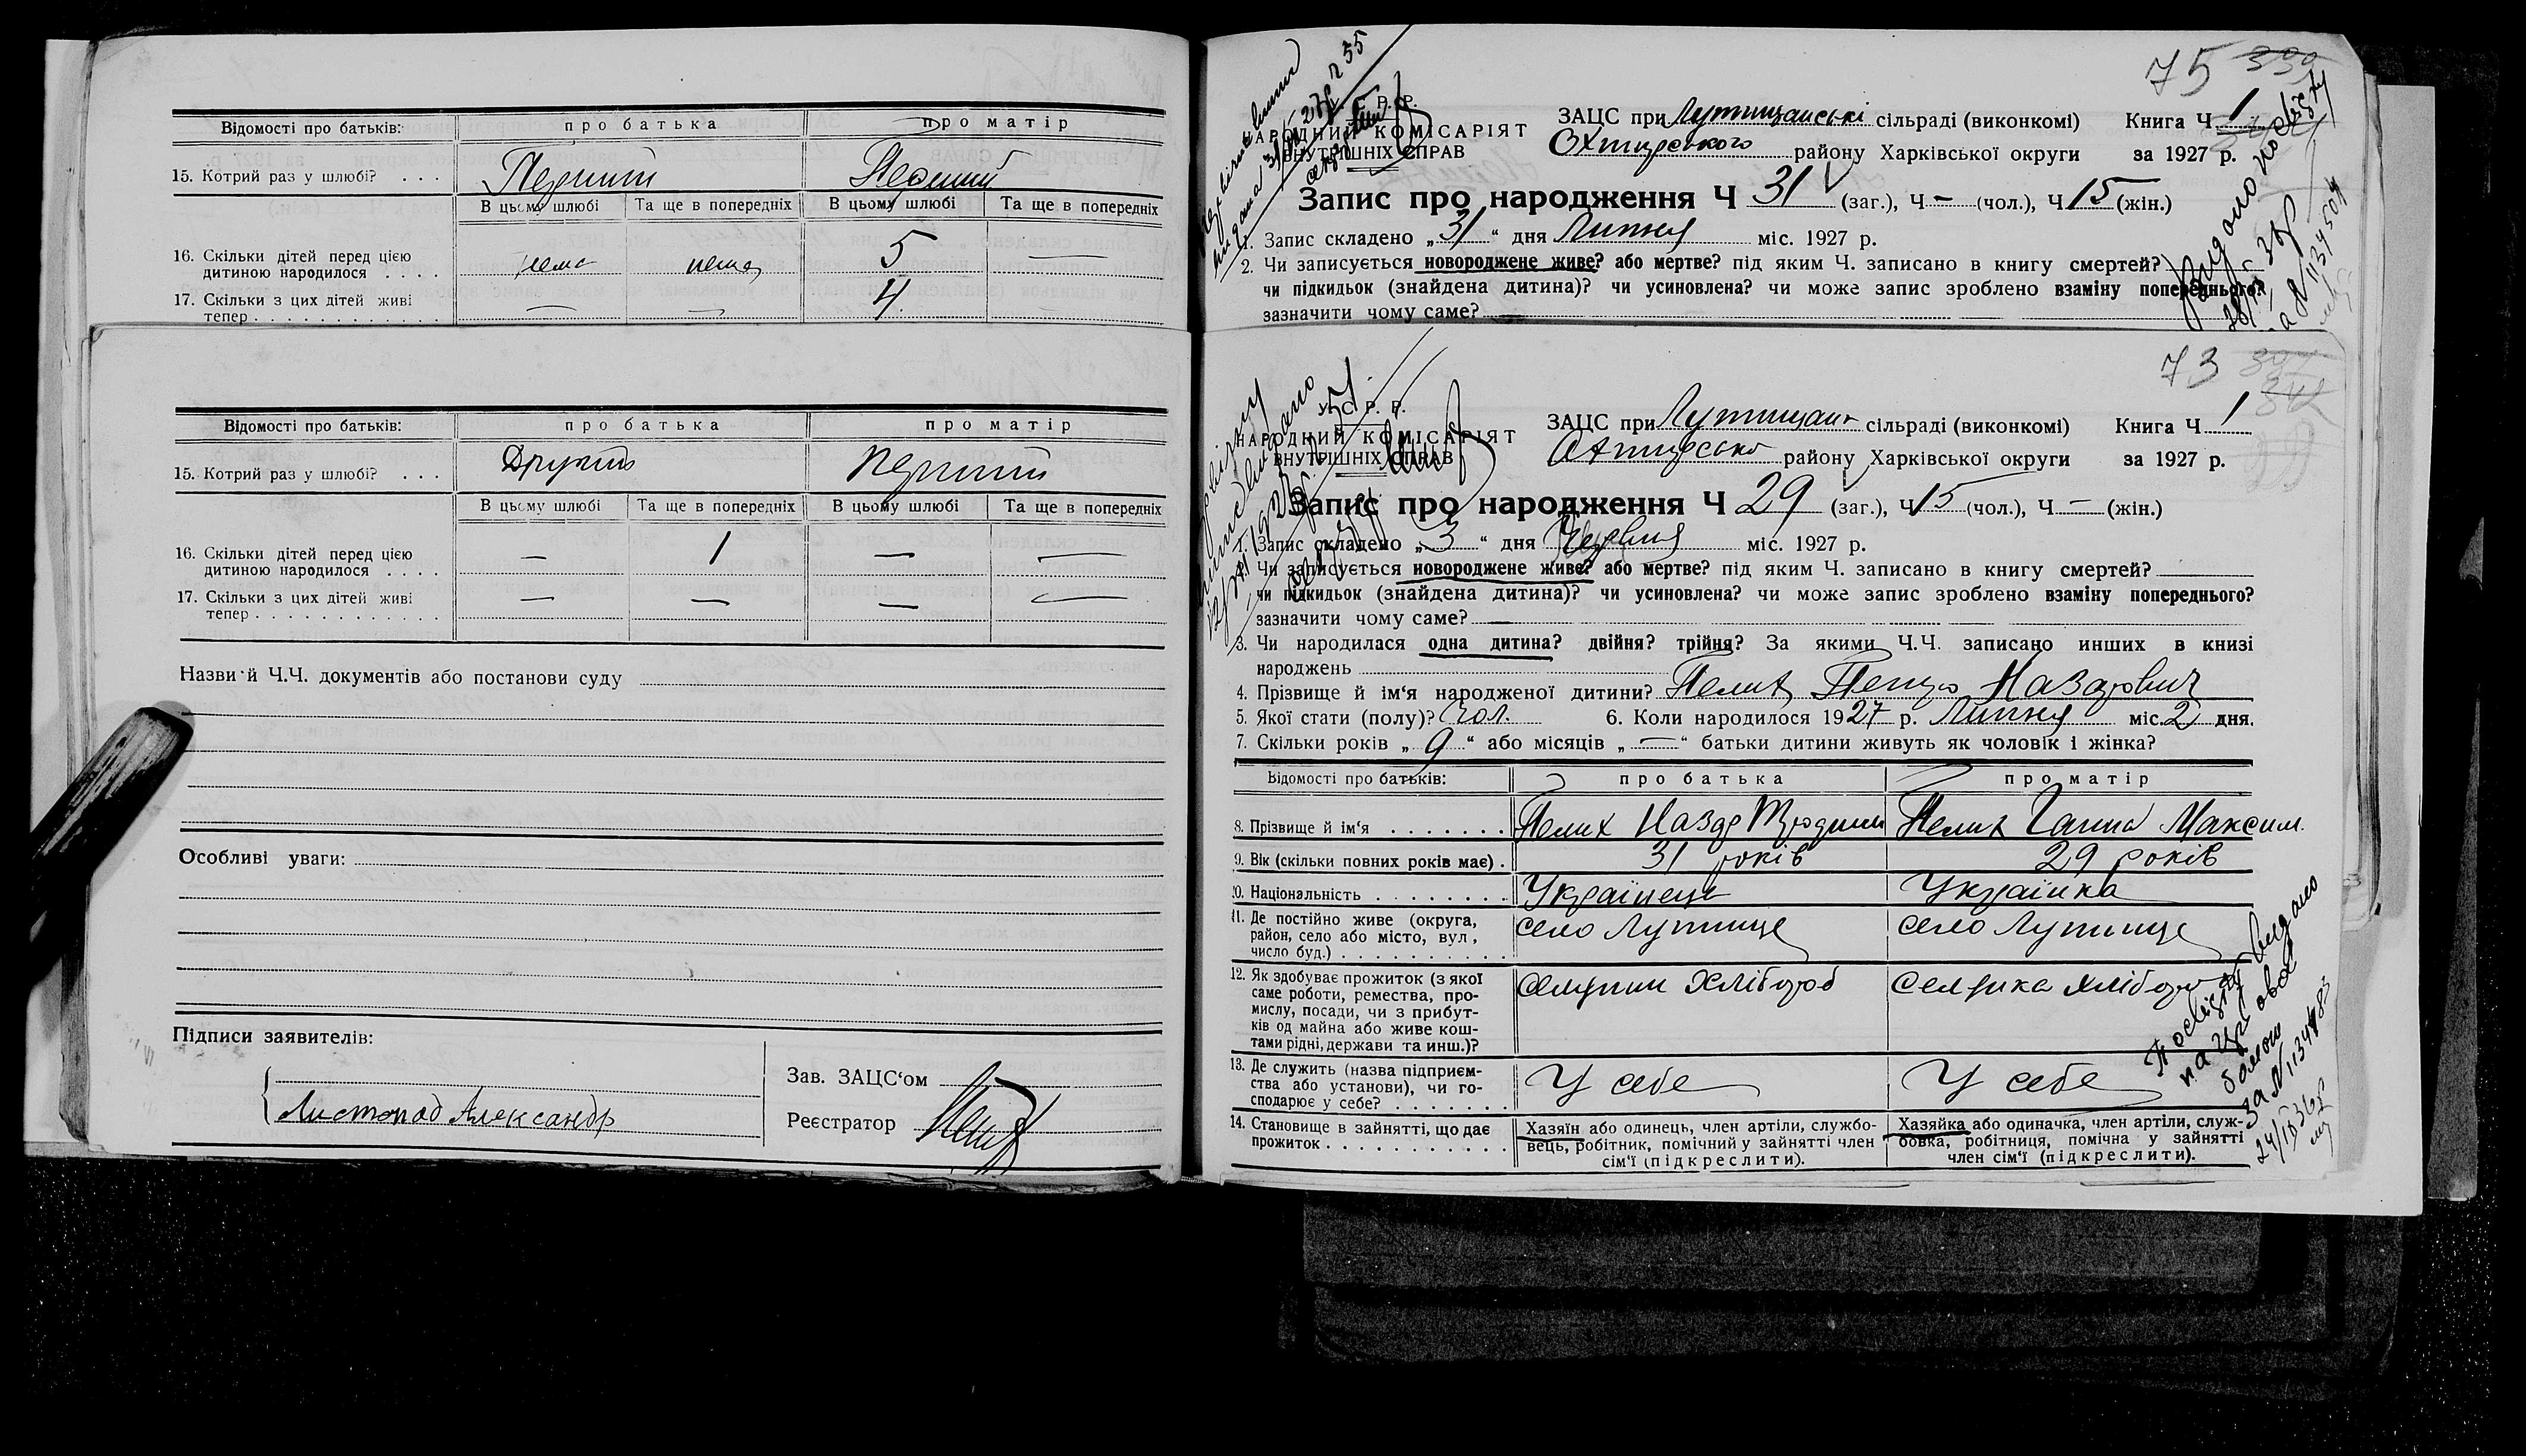 Відомості про батьків: про батька про матір
15. Котрий раз у шлюбі? . . . Перший Перший
В цьому шлюбі Та ще в попередніх В цьому шлюбі Та ще в попередніх
16. Скільки дітей перед цією
дитиною народилося . . . . нема нема 5 —
17. Скільки з цих дітей живі
тепер . . . . . . . . . . . . — — 4
Відомості про батьків: про батька про матір
15. Котрий раз у шлюбі? . . . Другий Перший
В цьому шлюбі Та ще в попередніх В цьому шлюбі Та ще в попередніх
16. Скільки дітей перед цією
дитиною народилося . . . . — 1 — —
17. Скільки з цих дітей живі
тепер . . . . . . . . . . . . — — — —
Назви й Ч.Ч. документів або постанови суду
Особливі уваги:
Підписи заявителів:
Листопад Александр
Зав. ЗАЦС‘ом
Реєстратор
75 339
У. С. Р. Р.
НАРОДНИЙ КОМІСАРІЯТ
ВНУТРІШНІХ СПРАВ
ЗАЦС при Лутищанські сільраді (виконкомі) Книга Ч. 1
Охтирського району Харківської округи за 1927 р.
Запис про народження Ч 31 (заг.), Ч — (чол.), Ч 15 (жін.)
1. Запис складено „31“ дня Липня міс. 1927 р.
2. Чи записується новороджене живе? або мертве? під яким Ч. записано в книгу смертей?
чи підкидьок (знайдена дитина)? чи усиновлена? чи може запис зроблено взаміну попереднього?
зазначити чому саме?
Видано посвідку
за № 1134504
73
У. С. Р. Р.
НАРОДНИЙ КОМІСАРІЯТ
ВНУТРІШНІХ СПРАВ
ЗАЦС при Лутищан сільраді (виконкомі) Книга Ч 1
Охтирсько району Харківської округи за 1927 р.
Запис про народження Ч 29 (заг.), Ч 15 (чол.), Ч — (жін.)
1. Запис складено „3“ дня Червня міс. 1927 р.
Чи записується новороджене живе? або мертве? під яким Ч. записано в книгу смертей?
чи підкидьок (знайдена дитина)? чи усиновлена? чи може запис зроблено взаміну попереднього?
зазначити чому саме?
3. Чи народилася одна дитина? двійня? трійня? За якими Ч.Ч. записано инших в книзі
народжень
4. Прізвище й ім‘я народженої дитини? Пелих Петро Назарович
5. Якої стати (полу)? Чол. 6. Коли народилося 1927 р. Липня міс. 2 дня.
7. Скільки років „9“ або місяців „—“ батьки дитини живуть як чоловік і жінка?
Відомості про батьків: про батька про матір
8. Прізвище й ім‘я . . . . . . . Пелих Назар Пелих Ганна Максим.
9. Вік (скільки повних років має) . 31 років 29 років
10. Національність . . . . . . . . Українець Українка
11. Де постійно живе (округа,
район, село або місто, вул.,
число буд.) . . . . . . . . . . . село Лутище село Лутище
12. Як здобуває прожиток (з якої
саме роботи, ремества, про-
мислу, посади, чи з прибут-
ків од майна або живе кош-
тами рідні, держави та инш.)? Селянин Хлібороб Селянка Хлібороб
13. Де служить (назва підприєм-
ства або установи), чи го-
сподарює у себе? . . . . . . . У себе У себе
14. Становище в зайнятті, що дає
прожиток . . . . . . . . . . . .
Хазяїн або одинець, член артіли, службо-
вець, робітник, помічний у зайнятті член
сім‘ї (підкреслити).
Хазяйка або одиначка, член артіли, служ-
бовка, робітниця, помічна у зайнятті
член сім‘ї (підкреслити).
Посвідку видано
за № 1134483